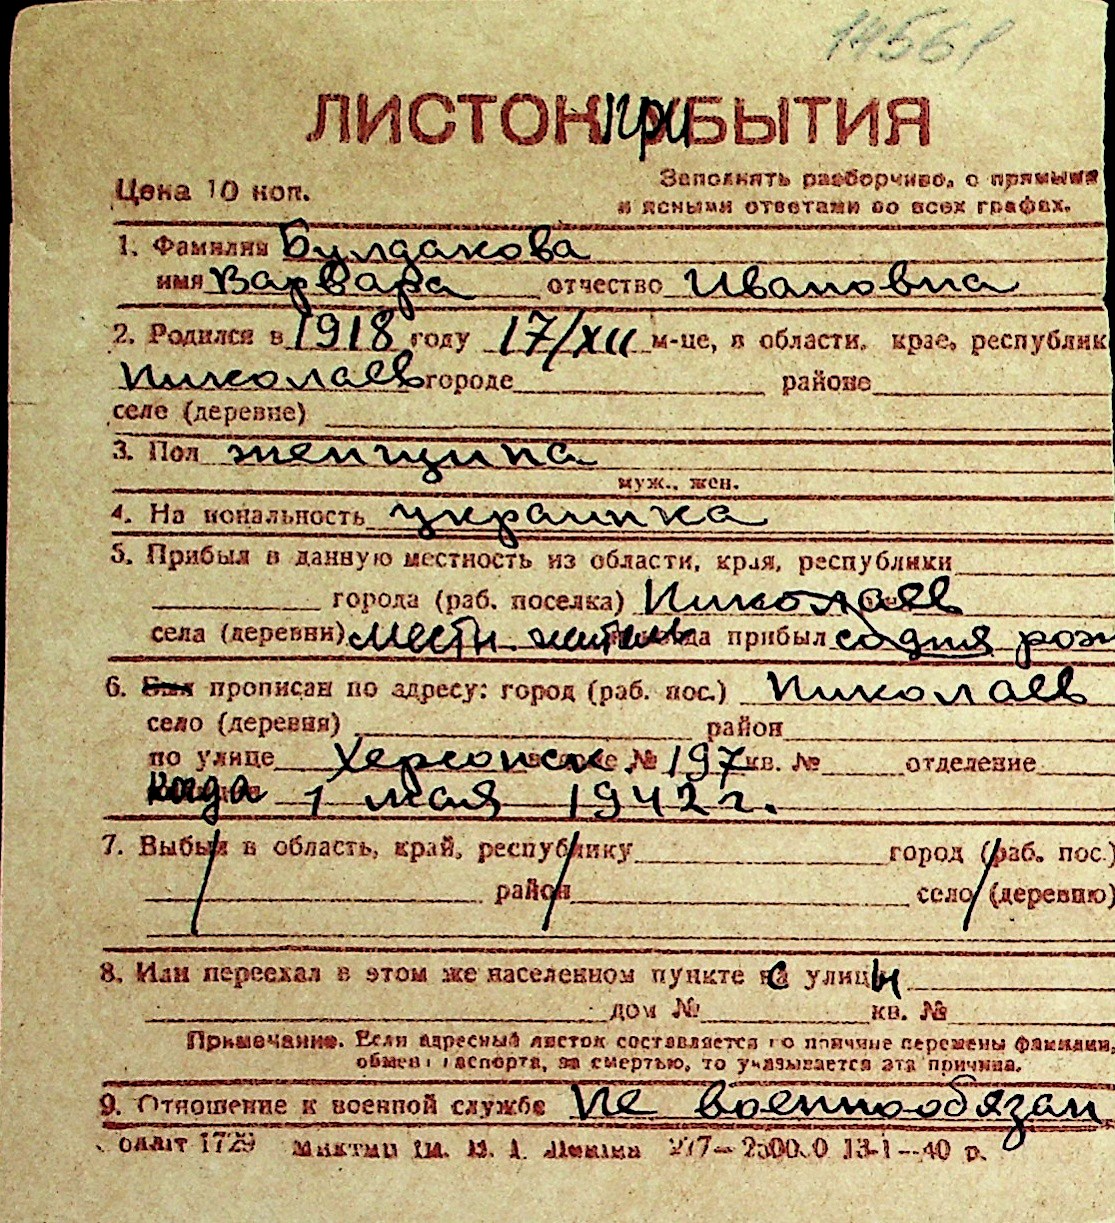 14561
ЛИСТОК ПриБЫТИЯ
Цена 10 коп.
Заполнять разборчиво, с прямыми
и ясными ответами во всех графах.
1. Фамилия Булдакова
имя Варвара отчество Ивановна
2. Родился в 1918 году 17/XII м-це, в области, крае, республик
Николаев городе районе
селе (деревне)
3. Пол женщина
муж., жен.
4. На иональность украинка
5. Прибыл в данную местность из области, края, республики
города (раб. поселка) Николаев
села (деревни) местн. житель когда прибыл со дня рож
6. Был прописан по адресу: город (раб. пос.) Николаев
село (деревня) район
по улице Херсонск. доме № 197 кв. № отделение
когда 1 мая 1942 г.
7. Выбыл в область, край, республику город (раб. пос.)
район село (деревню)
8. Или переехал в этом же населенном пункте с улицы
дом № кв. №
Примечание. Если адресный листок составляется по причине перемены фамилии,
обмена паспорта, за смертью, то указывается эта причина.
9. Отношение к военной службе не военнообязан
1729 13-1—40 р.